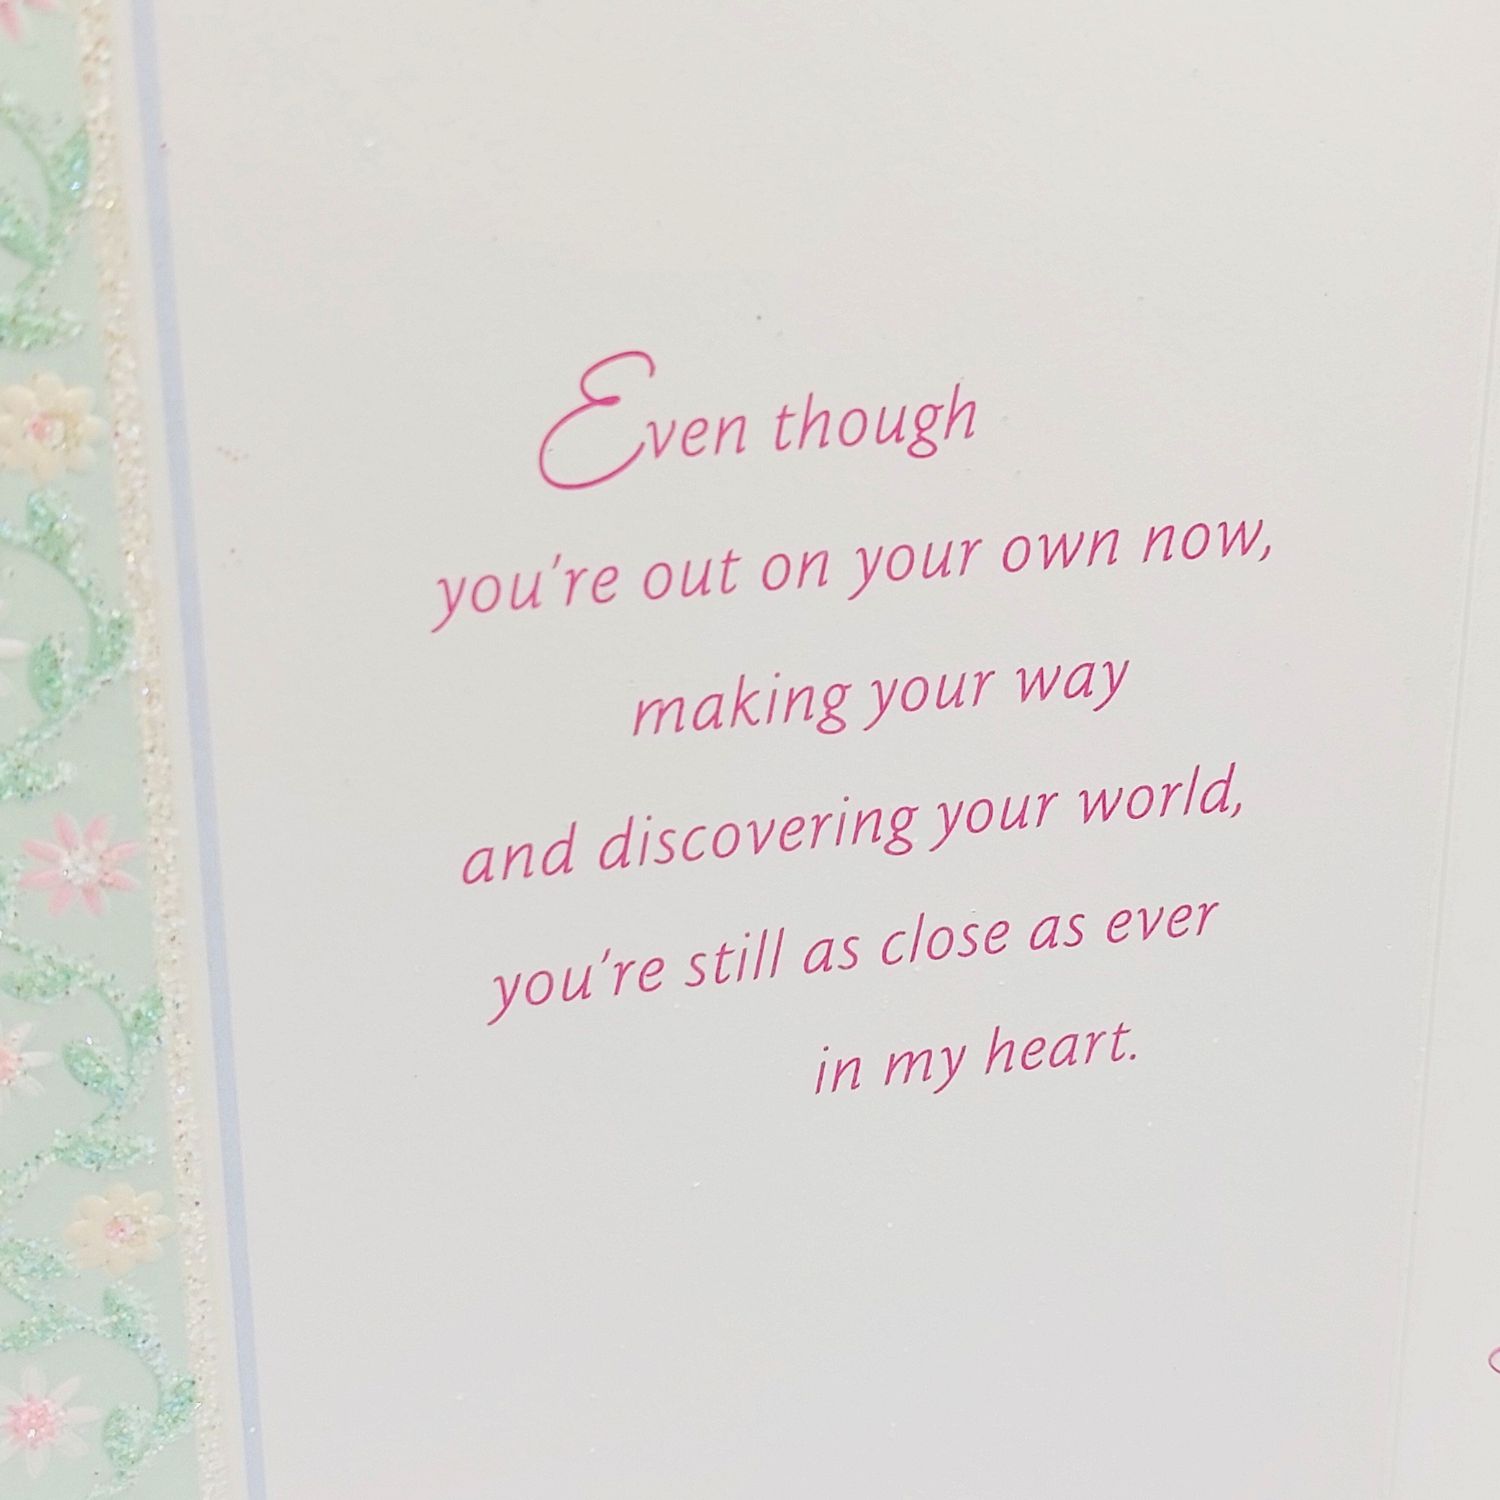 Even though
you're out on your own now,
making your way
and discovering your world,
you're still as close as ever
in my heart.